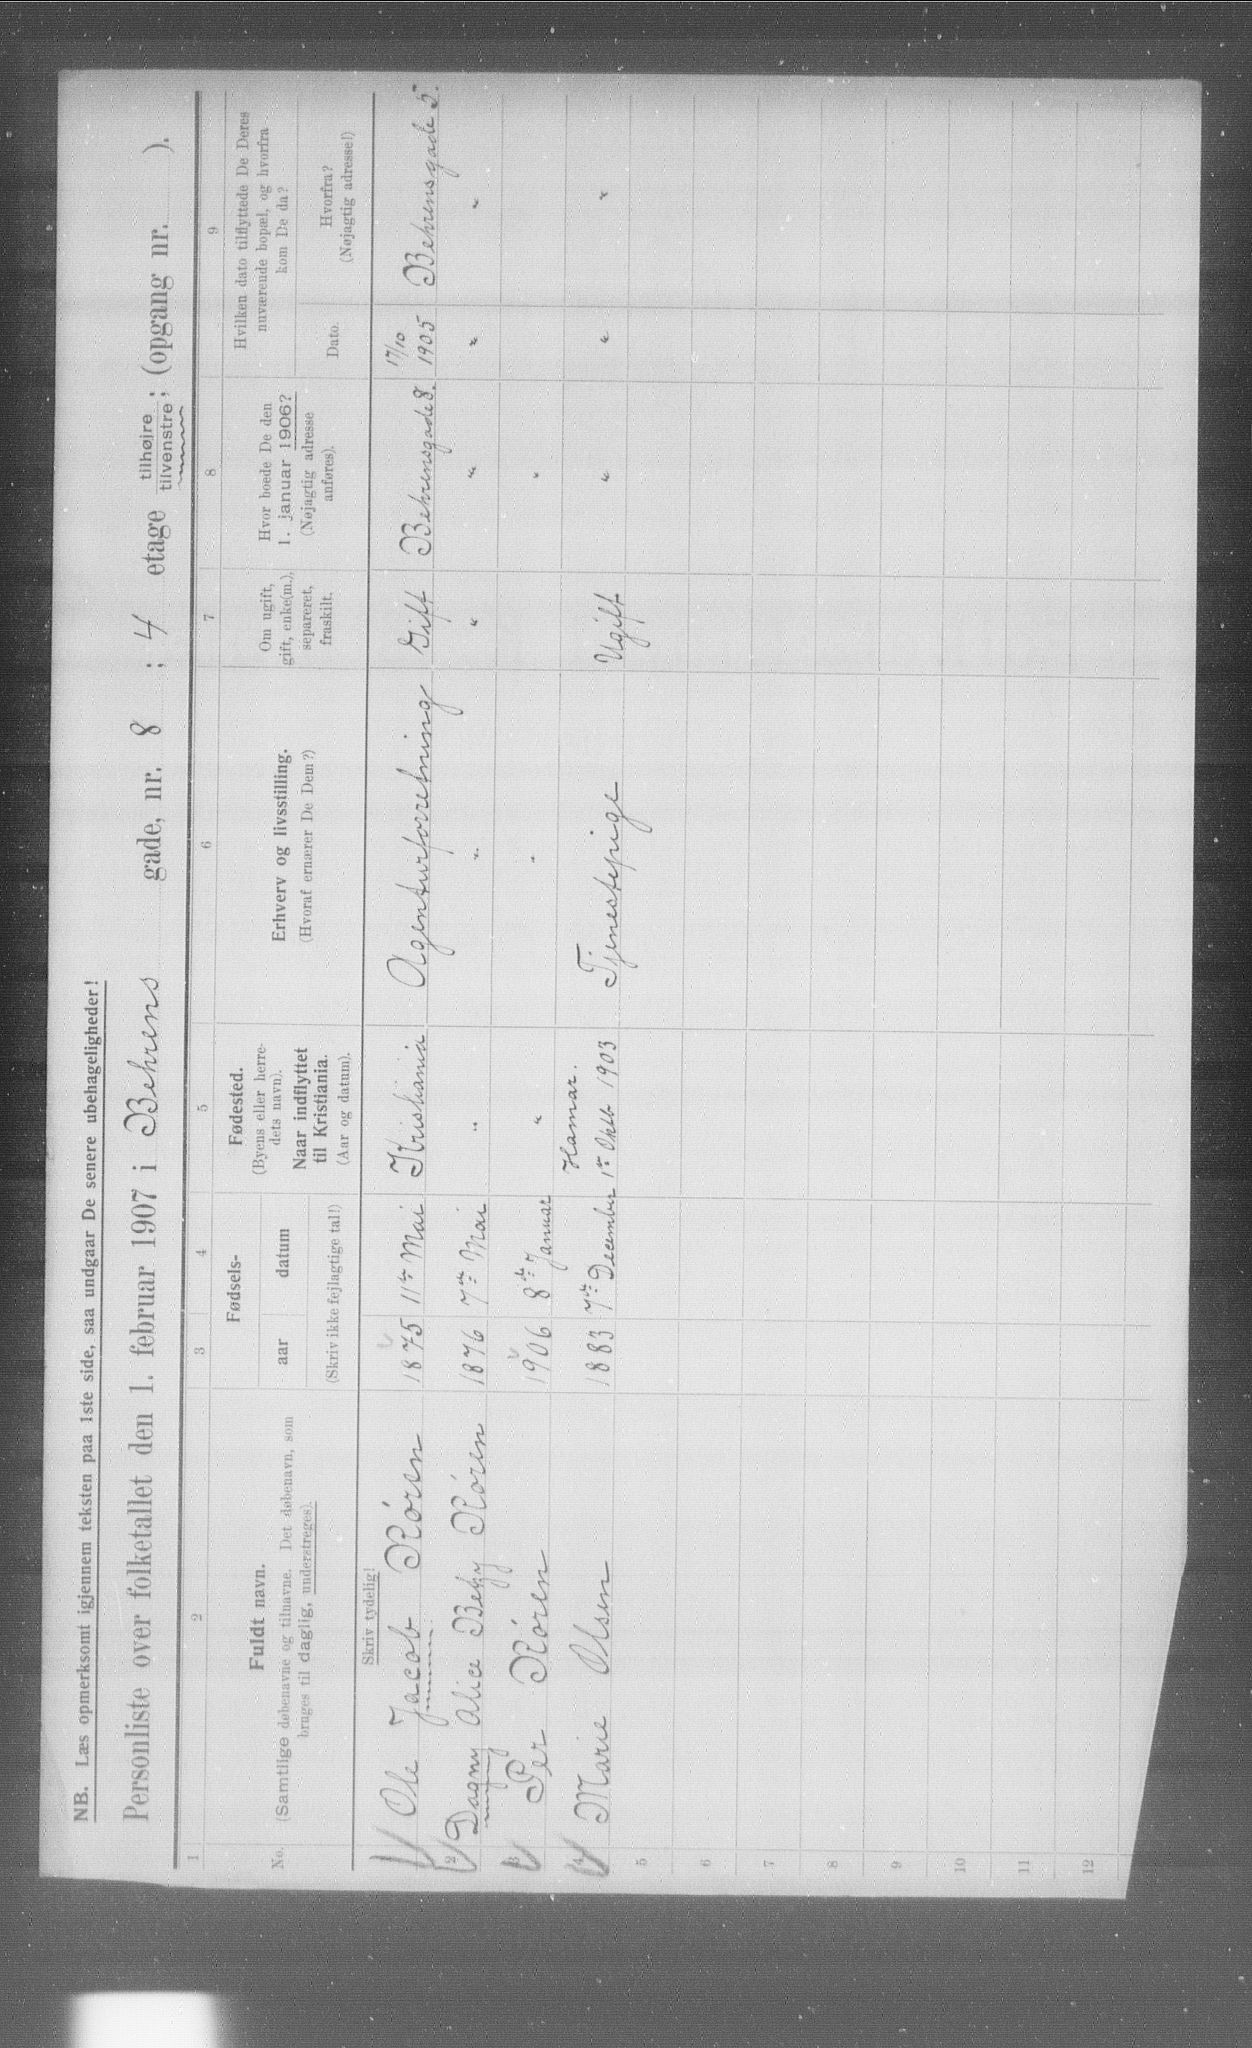 NB. Læs opmerksomt igjennem teksten paa 1ste side, saa undgaar De senere ubehageligheder!
Personliste over folketallet den 1. februar 1907 i Behrens gade, nr. 8 ; 4 etage tilhøjre tilvenstre ; (opgang nr. ).
1 2 3 4 5 6 7 8 9
No.
Fuldt navn.
(Samtlige døbenavne og tilnavne. Det døbenavn, som
bruges til daglig, understreges).
Fødsels-
aar datum
(Skriv ikke fejlagtige tal!)
Fødested.
(Byens eller herre-
dets navn).
Naar indflyttet
til Kristiania.
(Aar og datum).
Erhverv og livsstilling.
(Hvoraf ernærer De Dem?)
Om ugift,
gift, enke(m.),
separeret,
fraskilt.
Hvor boede De den
1. januar 1906?
(Nøjagtig adresse
anføres).
Hvilken dato tilflyttede De Deres
nuværende bopæl, og hvorfra
kom De da?
Dato.
Hvorfra?
(Nøjagtig adresse!)
Skriv tydelig!
Ole Jacob Røren 1875 11te Mai Kristiania Agenturforretning Gift Behrensgade 8. 17/10 1905 Behrensgade 5.
2 Dagny Alice Betzy Røren 1876 7de Mai " " " " " "
3 Per Røren 1906 8de Januar " " "
4 Marie Olsen 1883 7de December Hamar. 1te Oktb 1903 Tjenestepige Ugift " " "
5
6
7
8
9
10
11
12